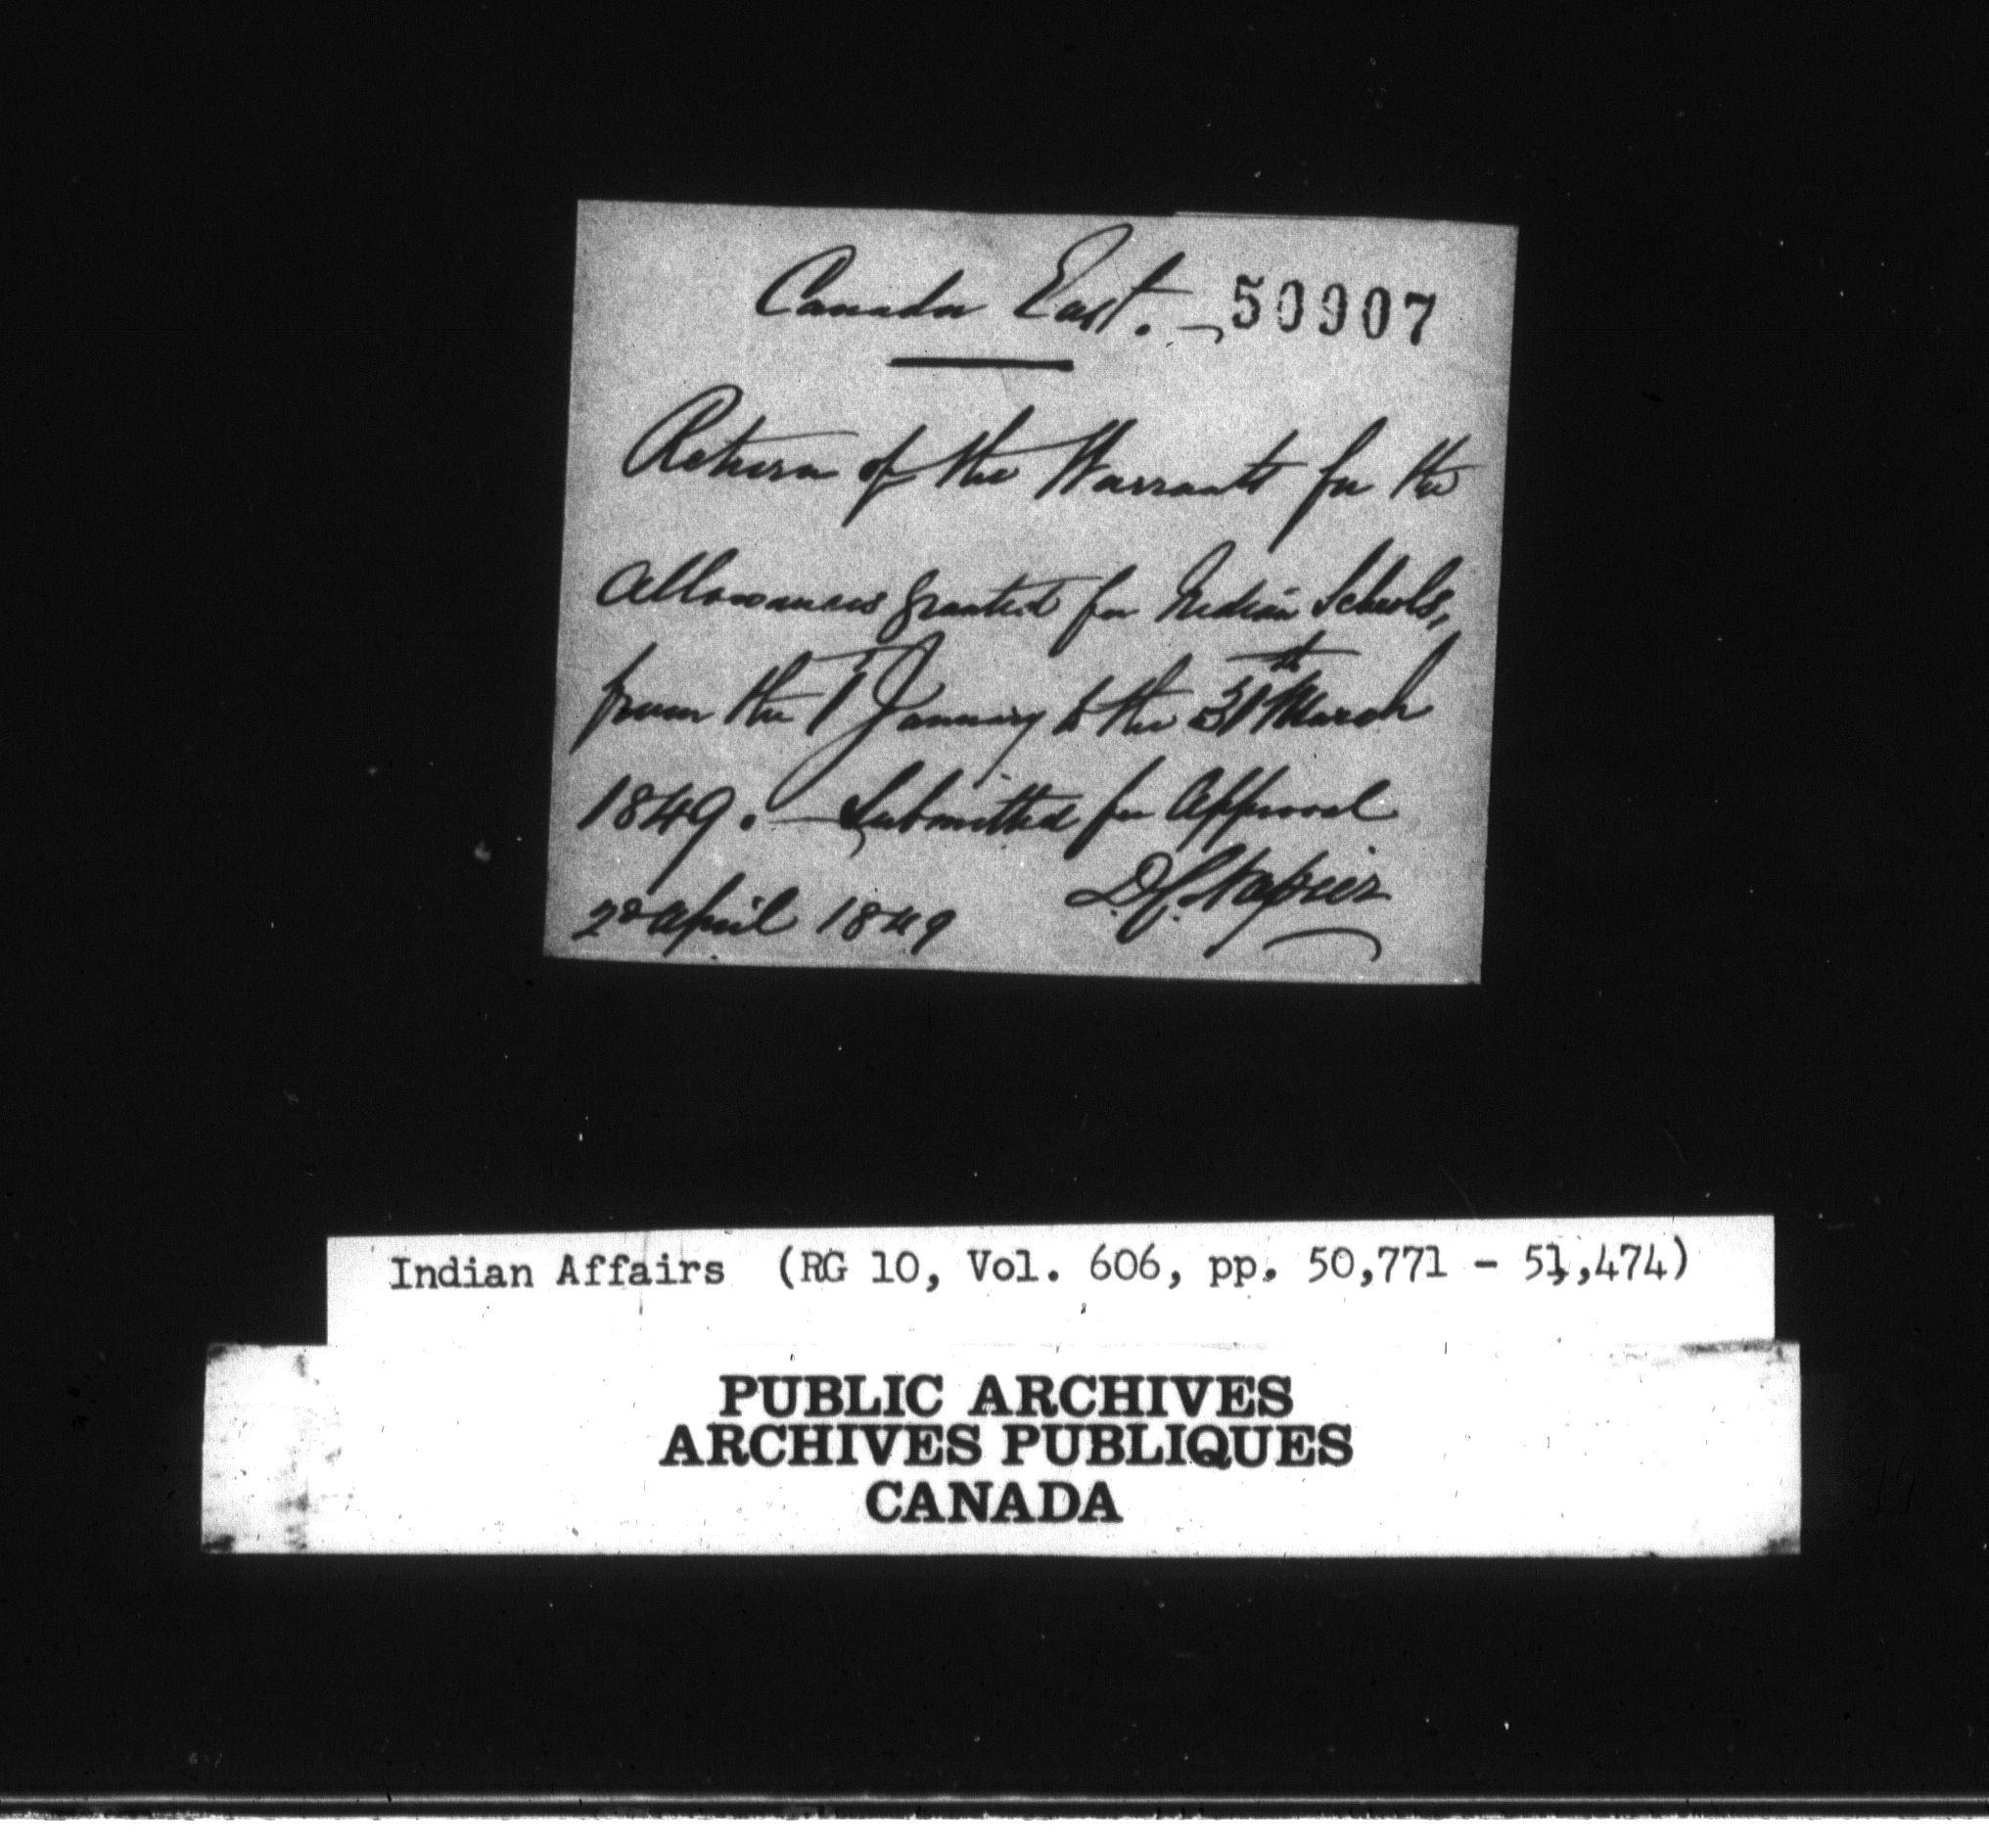 Canada East. - 50907
Return of the Warrants for the
Allowances granted for Indian Schools,
from the 1st January to the 31th March
1849. - Submitted for Approval
D C Napier
2d April 1849
Indian Affairs (RG 10, Vol. 606, pp. 50,771 - 51,474)
PUBLIC ARCHIVES
ARCHIVES PUBLIQUES
CANADA